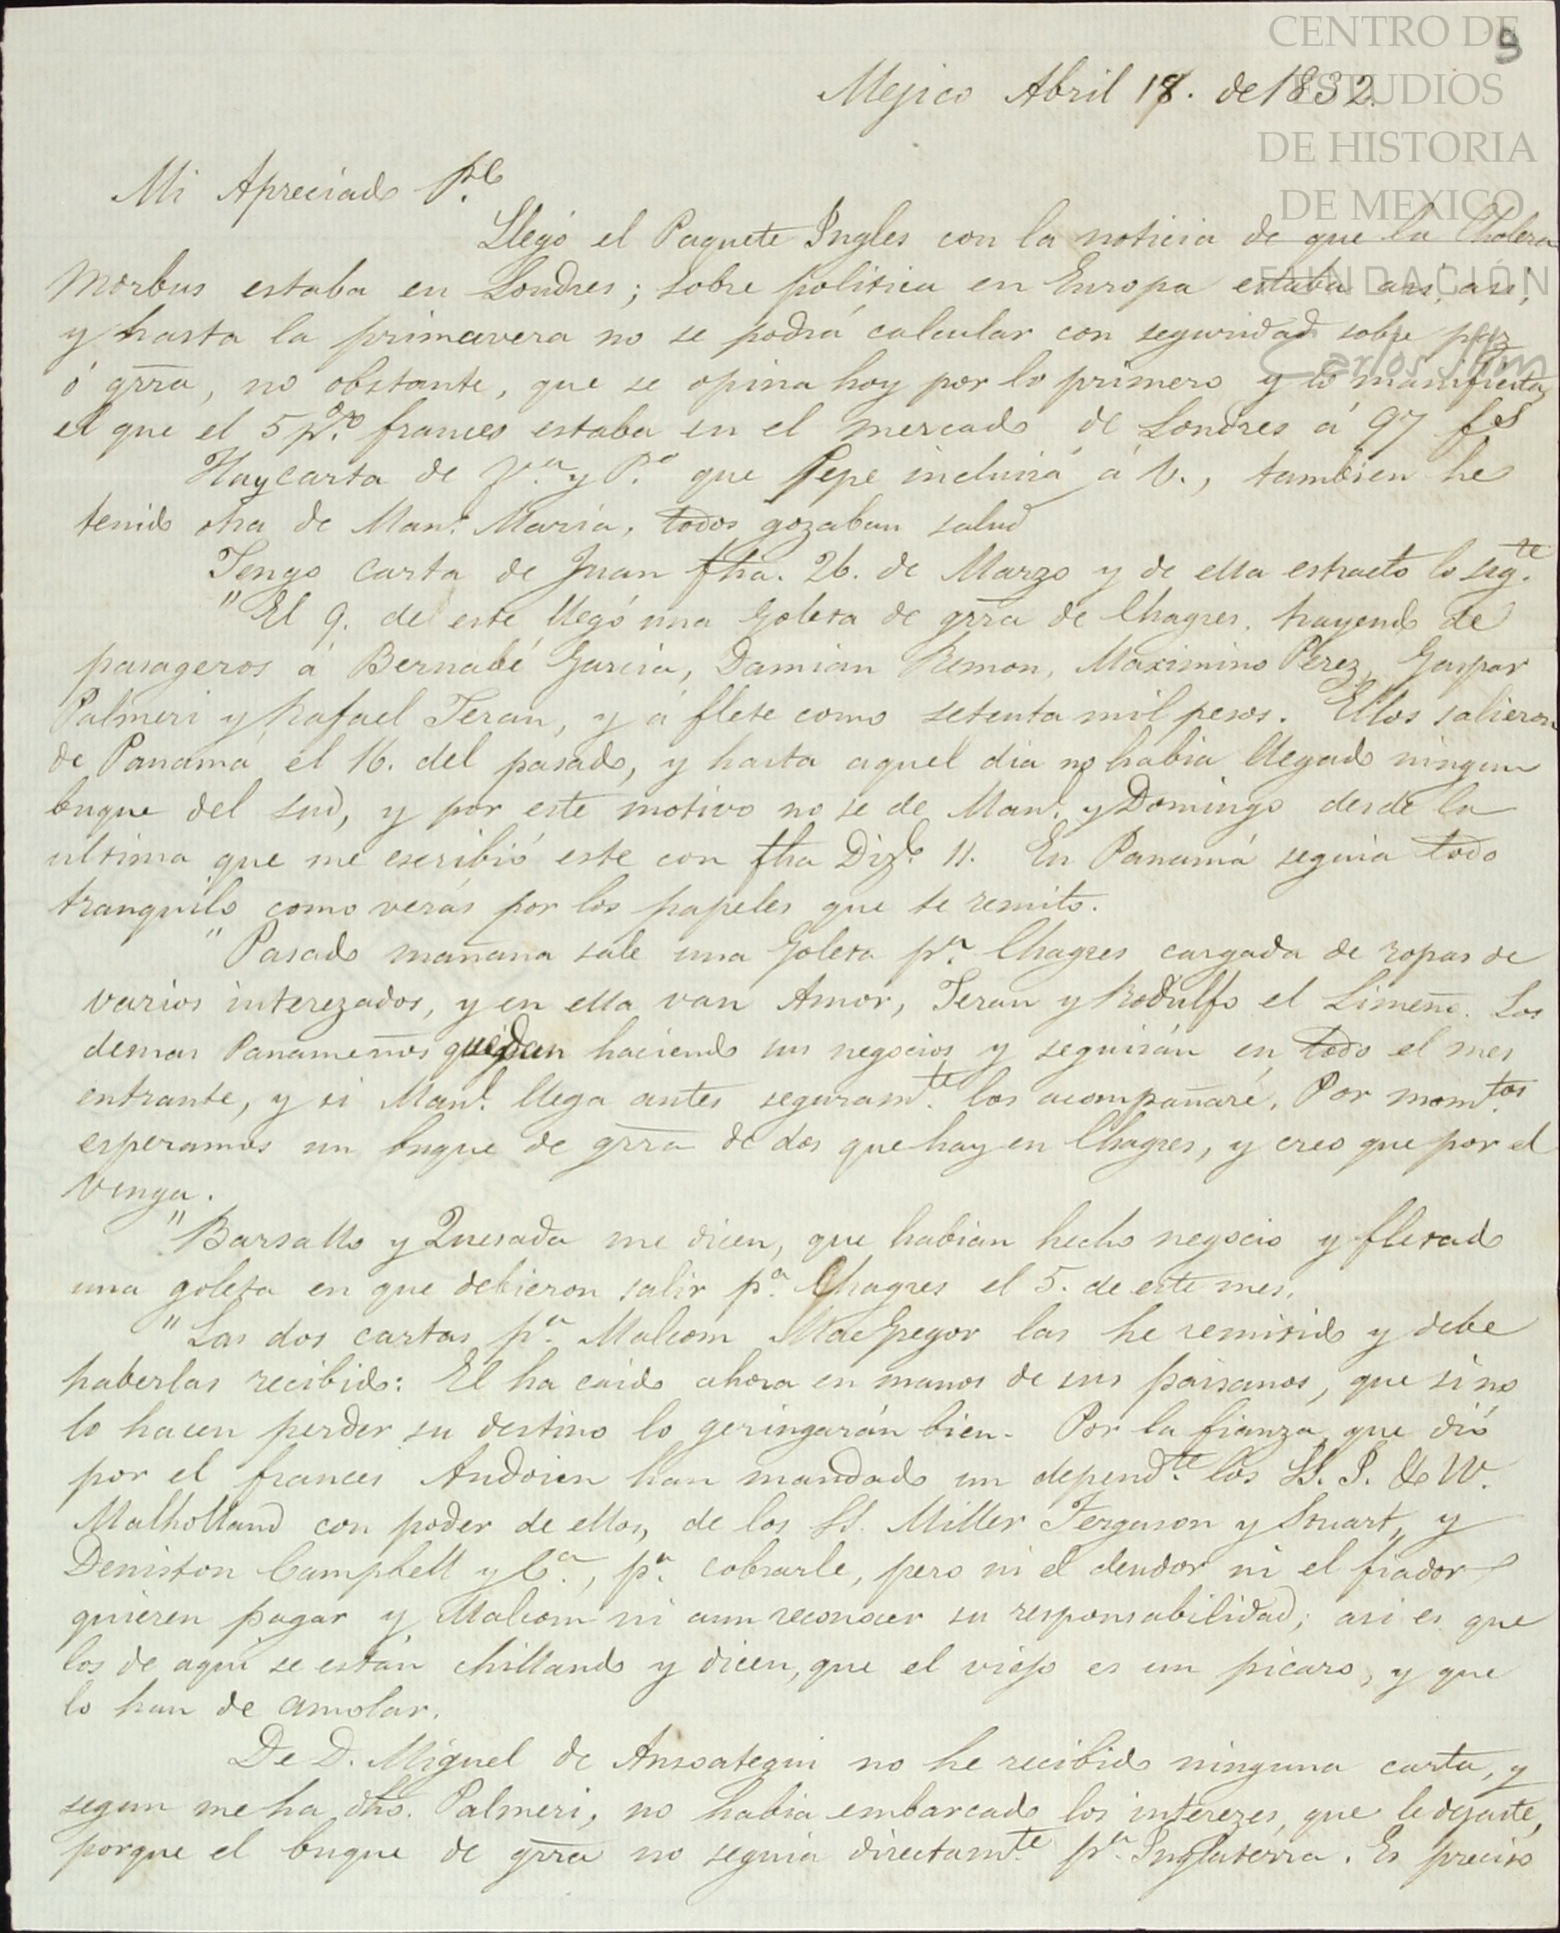 CENTRO DE
ESTUDIOS
DE HISTORIA
DE MEXICO
FUNDACIÓN
Carlos Slim
9
Mejico Abril 18. de 1832.
Mi Apreciado
Llegó el Paquete Ingles con la noticia de que la Cholera
Morbus estaba en Londres; sobre politica en Europa estaba asi, asi,
y hasta la primavera no se podrá calcular con seguridad sobre paz
ó grra, no obstante, que se opina hoy por lo primero y lo manifiesta
el que el 5 p.% frances estaba en el mercado de Londres á 97 fs
Hay carta de y P.e que Pepe incluirá á V., tambien he
tenido otra de Man.l Maria, todos gozaban salud
Tengo carta de Juan fha. 26. de Marzo y de ella estracto lo sig.te
"El 9. de este llegó una Goleta de grra de Chagres. trayendo de
pasageros á Bernabé Garcia, Damian Remon, Maximino Perez, Gaspar
Palmeri y Rafael Teran, y á flete como setenta mil pesos. Ellos salieron
de Panamá el 16. del pasado, y hasta aquel dia no habia llegado ningun
buque del sud, y por este motivo no se de Man.l y Domingo desde la
ultima que me escribió este con fha Diz.e 11. En Panamá seguia todo
tranquilo como verás por los papeles que te remito.
"Pasado mañana sale una Goleta p.a Chagres cargada de ropas de
varios interezados, y en ella van Amor, Teran y Rodulfo el Limeño. Los
demas Panameños quedan haciendo sus negocios y seguirán en todo el mes
entrante, y si Man.l llega antes seguram.te los acompañaré. Por mom.tos
esperamos un buque de grra de dos que hay en Chagres, y creo que por el
venga.
"Barsallo y Quesada me dicen, que habian hecho negocio y fletado
una goleta en que debieron salir p.a Chagres el 5. de este mes.
"Las dos cartas p.a Malcom MacGregor las he remitido y debe
haberlas recibido: El ha caido ahora en manos de sus paisanos, que si no
lo hacen perder su destino lo geringarán bien. Por la fianza que dió
por el frances Andoien han mandado un depend.te los SS. J. & W.
Malholland con poder de ellos, de los SS. Miller Ferguson y Stuart, y
Deniston Campbell y C.a, p.a cobrarle, pero ni el deudor ni el fiador
quieren pagar y Malcom ni aun reconocer su responsabilidad; asi es que
los de aqui se están chillando y dicen, que el viejo es un picaro, y que
lo han de amolar.
De D. Miguel de Ansoategui no he recibido ninguna carta, y
segun me ha dho. Palmeri, no habia embarcado los interezes, que le dejaste,
porque el buque de grra no seguia directam.te p.a Inglaterra. Es preciso